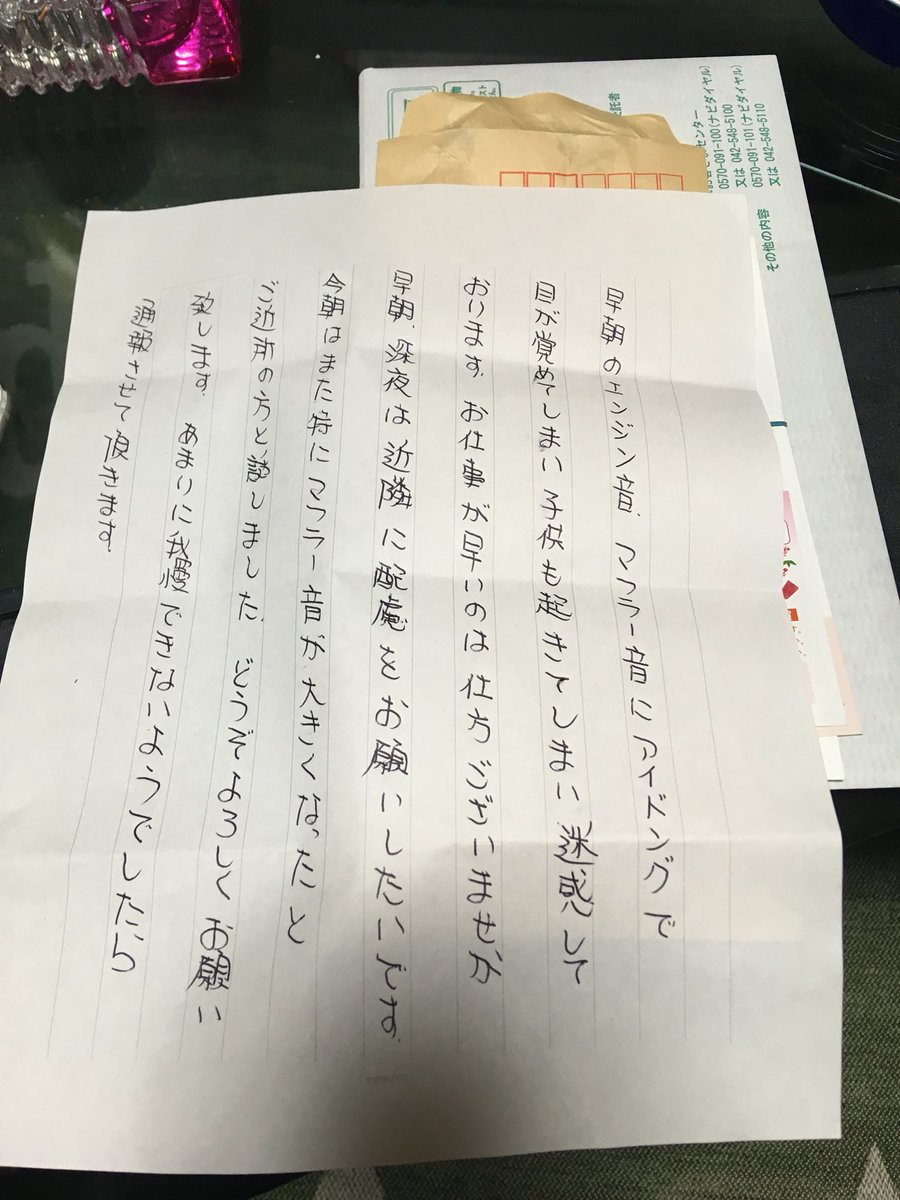 早朝のエンジン音、マフラー音にアイドングで
目が覚めてしまい子供も起きてしまい迷惑して
おります。お仕事が早いのは仕方ございませが
早朝、深夜は近隣に配慮をお願いしたいです。
今朝はまた特にマフラー音が大きくなったと
ご近所の方と話しました。どうぞよろしくお願い
致します。あまりに我慢できないようでしたら
通報させて頂きます。
センター
0570-091-100(ナビダイヤル)
又は 042-548-5100
0570-091-101(ナビダイヤル)
又は 042-548-5110
その他の内容